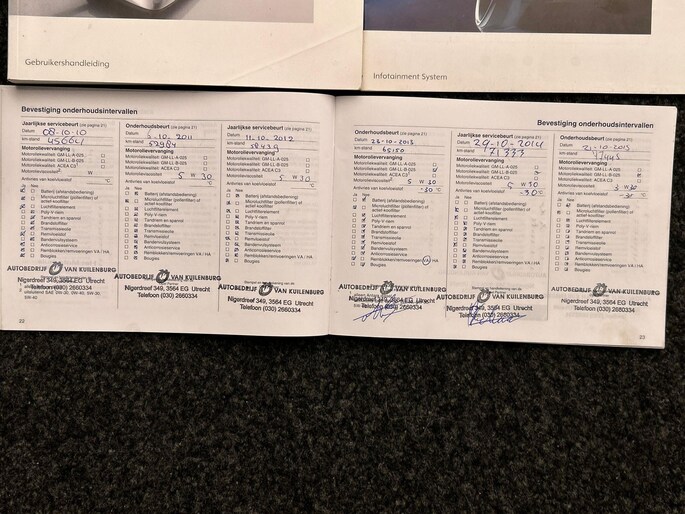 Gebruikershandleiding
Infotainment System
Bevestiging onderhoudsintervallen
Jaarlijkse servicebeurt (zie pagina 21)
Datum 08-10-10
km-stand
Motorolievervanging
Motoroliekwaliteit: GM-LL-A-025
Motoroliekwaliteit: GM-LL-B-025
Motoroliekwaliteit: ACEA C3
Motorolieviscositeit W
Antivries van koelvloeistof °C
Ja Nee
Batterij (afstandsbediening)
Microluchtfilter (pollenfilter) of
actief koolfilter
Luchtfilterelement
Poly V-riem
Tandriem en spanrol
Brandstoffilter
Transmissieolie
Remvloeistof
Bandenvulsysteem
Anticorrosieservice
Remblokken/remvoeringen VA / HA
Bougies
AUTOBEDRIJF VAN KUILENBURG
Onderhoudsbeurt (zie pagina 21)
Datum 5-10-2011
km-stand 52984
Motorolievervanging
Motoroliekwaliteit: GM-LL-A-025
Motoroliekwaliteit: GM-LL-B-025
Motoroliekwaliteit: ACEA C3
Motorolieviscositeit 5 W 30
Antivries van koelvloeistof °C
Ja Nee
Batterij (afstandsbediening)
Microluchtfilter (pollenfilter) of
actief koolfilter
Luchtfilterelement
Poly V-riem
Tandriem en spanrol
Brandstoffilter
Transmissieolie
Remvloeistof
Bandenvulsysteem
Anticorrosieservice
Remblokken/remvoeringen VA / HA
Bougies
AUTOBEDRIJF VAN KUILENBURG
Nigerdreef 349, 3564 EG Utrecht
Telefoon (030) 2660334
Jaarlijkse servicebeurt (zie pagina 21)
Datum 11-10-2012
km-stand 58439
Motorolievervanging
Motoroliekwaliteit: GM-LL-A-025
Motoroliekwaliteit: GM-LL-B-025
Motoroliekwaliteit: ACEA C3
Motorolieviscositeit 5 W 30
Antivries van koelvloeistof °C
Ja Nee
Batterij (afstandsbediening)
Microluchtfilter (pollenfilter) of
actief koolfilter
Luchtfilterelement
Poly V-riem
Tandriem en spanrol
Brandstoffilter
Transmissieolie
Remvloeistof
Bandenvulsysteem
Anticorrosieservice
Remblokken/remvoeringen VA / HA
Bougies
AUTOBEDRIJF VAN KUILENBURG
Nigerdreef 349, 3564 EG Utrecht
Telefoon (030) 2660334
22
Bevestiging onderhoudsintervallen
Onderhoudsbeurt (zie pagina 21)
Datum -10-2013
km-stand 65150
Motorolievervanging
Motoroliekwaliteit: GM-LL-A-025
Motoroliekwaliteit: GM-LL-B-025
Motoroliekwaliteit: ACEA C3
Motorolieviscositeit 5 W 30
Antivries van koelvloeistof -30 °C
Ja Nee
Batterij (afstandsbediening)
Microluchtfilter (pollenfilter) of
actief koolfilter
Luchtfilterelement
Poly V-riem
Tandriem en spanrol
Brandstoffilter
Transmissieolie
Remvloeistof
Bandenvulsysteem
Anticorrosieservice
Remblokken/remvoeringen VA / HA
Bougies
AUTOBEDRIJF VAN KUILENBURG
Nigerdreef 349, 3564 EG Utrecht
Telefoon (030) 2660334
Jaarlijkse servicebeurt (zie pagina 21)
Datum 29-10-2014
km-stand 71333
Motorolievervanging
Motoroliekwaliteit: GM-LL-A-025
Motoroliekwaliteit: GM-LL-B-025
Motoroliekwaliteit: ACEA C3
Motorolieviscositeit 5 W 30
Antivries van koelvloeistof -30 °C
Ja Nee
Batterij (afstandsbediening)
Microluchtfilter (pollenfilter) of
actief koolfilter
Luchtfilterelement
Poly V-riem
Tandriem en spanrol
Brandstoffilter
Transmissieolie
Remvloeistof
Bandenvulsysteem
Anticorrosieservice
Remblokken/remvoeringen VA / HA
Bougies
AUTOBEDRIJF VAN KUILENBURG
Nigerdreef 349, 3564 EG Utrecht
Telefoon (030) 2660334
Onderhoudsbeurt (zie pagina 21)
Datum
km-stand
Motorolievervanging
Motoroliekwaliteit: GM-LL-A-025
Motoroliekwaliteit: GM-LL-B-025
Motoroliekwaliteit: ACEA C3
Motorolieviscositeit 5 W 30
Antivries van koelvloeistof
Ja Nee
Batterij (afstandsbediening)
Microluchtfilter (pollenfilter) of
actief koolfilter
Luchtfilterelement
Poly V-riem
Tandriem en spanrol
Brandstoffilter
Transmissieolie
Remvloeistof
Bandenvulsysteem
Anticorrosieservice
Remblokken/remvoeringen VA / HA
Bougies
AUTOBEDRIJF VAN KUILENBURG
Nigerdreef 349, 3564 EG Utrecht
Telefoon (030) 2660334
23